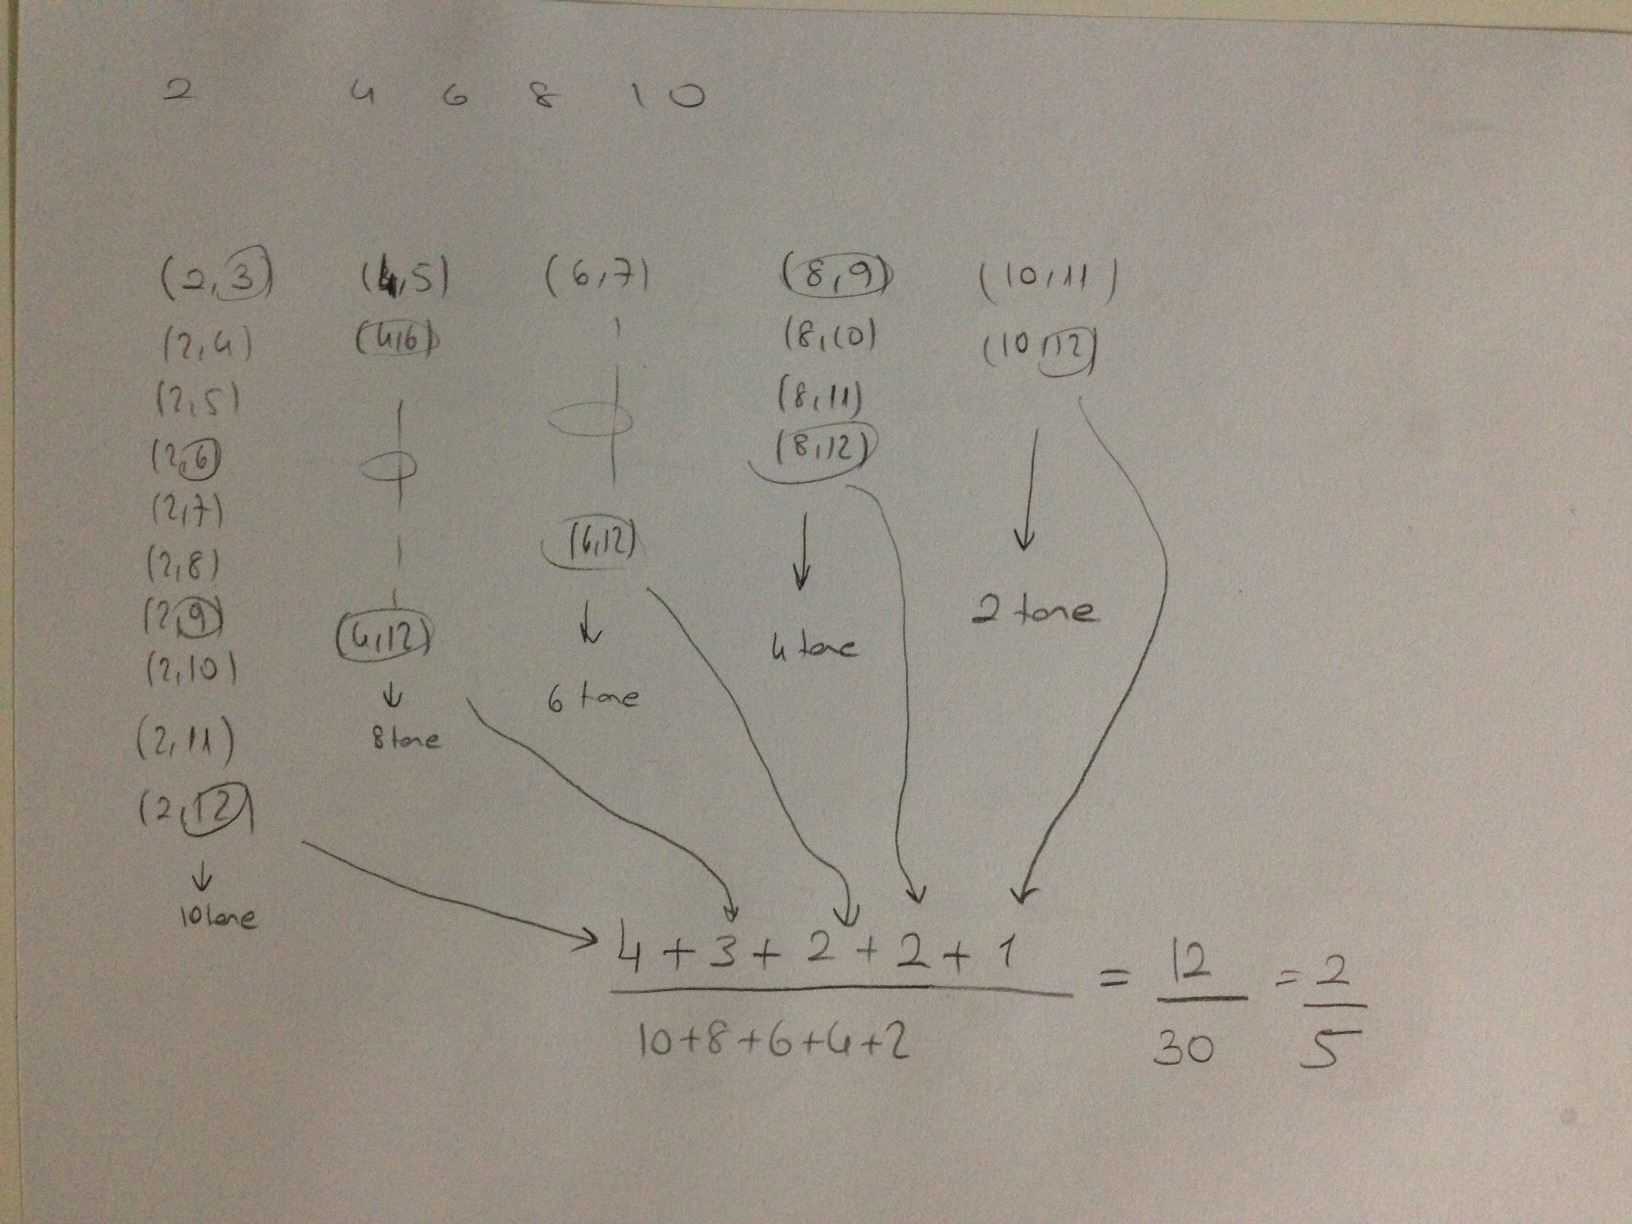 2 4 6 8 10
(2,3) (4,5) (6,7) (8,9) (10,11)
(2,4) (4,6) (8,10) (10,12)
(2,5) (8,11)
(2,6) (8,12)
(2,7)
(2,8) (6,12)
(2,9) (4,12) 4 tane 2 tane
(2,10) 6 tane
(2,11) 8 tane
(2,12)
10 tane
4 + 3 + 2 + 2 + 1 = 12 = 2
10+8+6+4+2 30 5